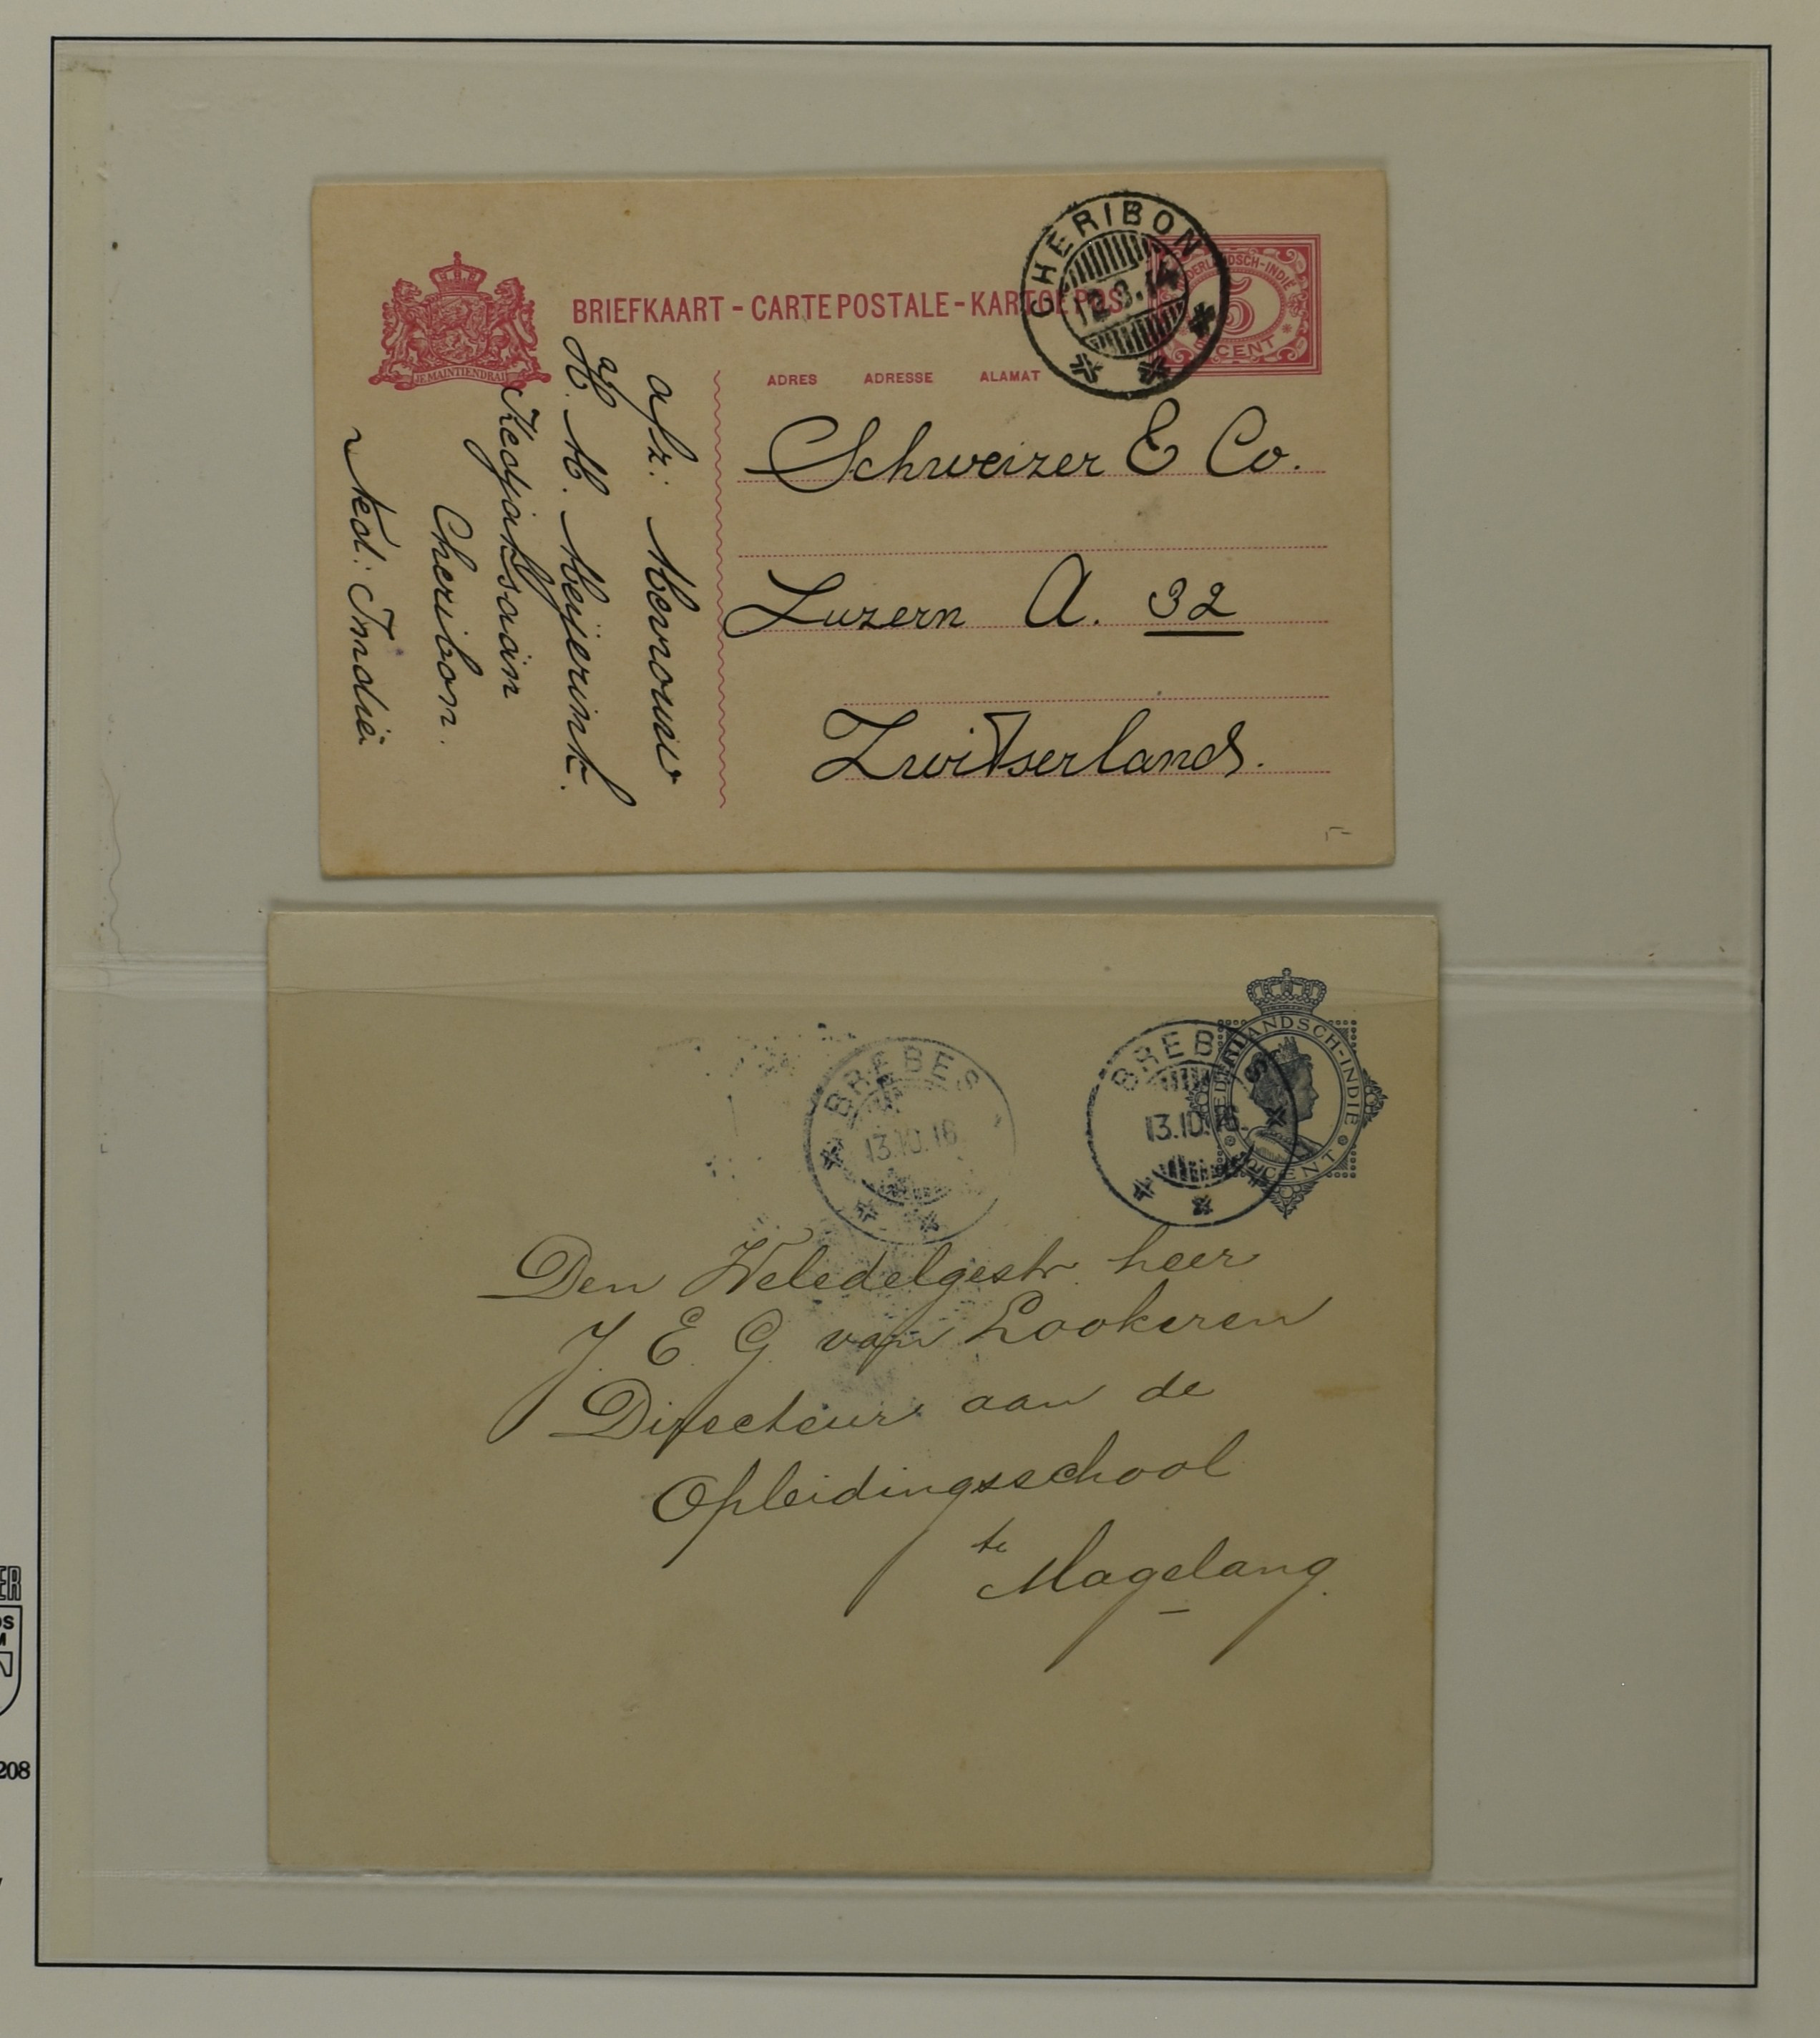 BRIEFKAART - CARTE POSTALE - KARTOE POS
CHERIBON
12.3.14
NEDERLANDSCH-INDIE
5
CENT
JE MAINTIENDRAI
ADRES ADRESSE ALAMAT
Schweizer & Co.
Luzern A. 32
Zwitserland.
afz: Mevrouw
H. M. Meijerink.
Cheribon.
Ned: Indië
5-
BREBES
13.10.16
BREBES
13.10.16
NEDERLANDSCH-INDIE
CENT
Den Weledelgestr. heer
J. E. G. van Lookeren
Directeur aan de
Opleidingsschool
te
Magelang.
ER
OS
M
208